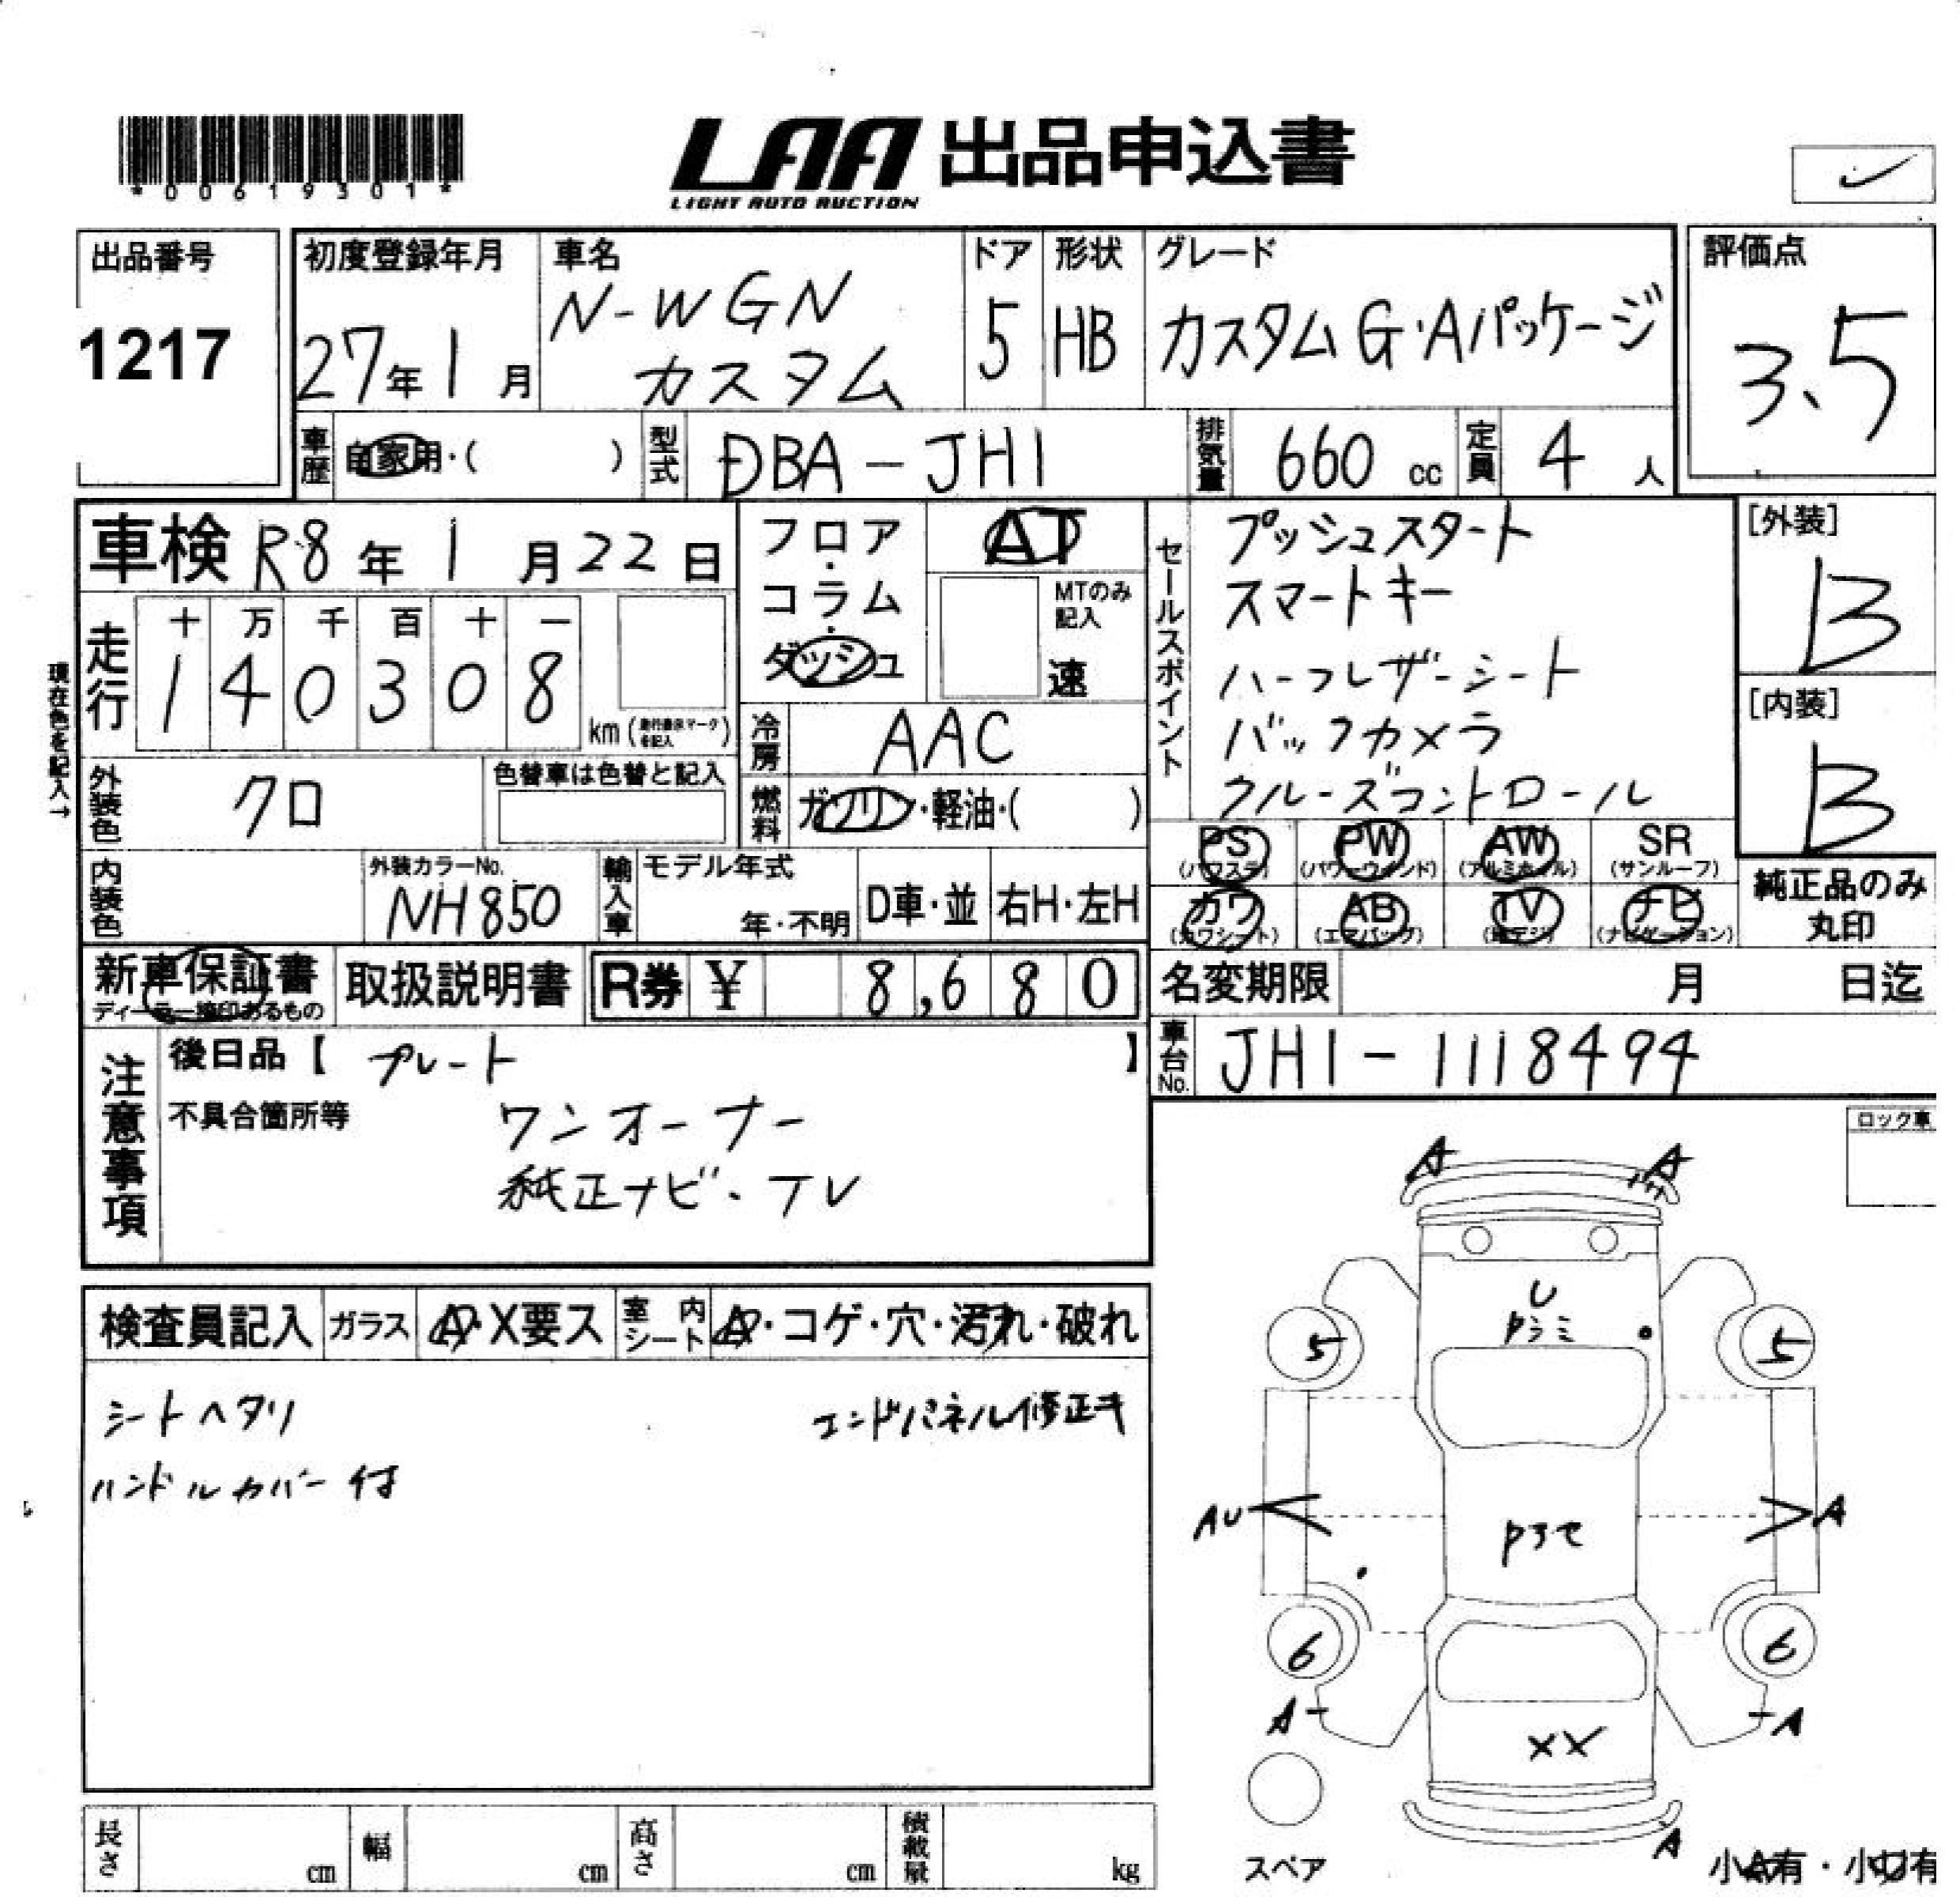 *00619301*
LAA 出品申込書
LIGHT AUTO AUCTION
出品番号
1217
初度登録年月
27年1月
車名
N-WGN
カスタム
ドア
5
形状
HB
グレード
カスタムG・Aパッケージ
評価点
3.5
車歴 自家用・( )
型式 DBA-JH1
排気量 660 cc
定員 4 人
車検 R8年1月22日
フロア・コラム・ダッシュ
AT
MTのみ記入
速
走行
十 万 千 百 十 一
1 4 0 3 0 8
km(走行要示マーク を記入)
現在色を記入→
冷房 AAC
外装色 クロ
色替車は色替と記入
燃料 ガソリン・軽油・( )
内装色
外装カラーNo.
NH850
輸入車
モデル年式
年・不明
D車・並
右H・左H
セールスポイント
プッシュスタート
スマートキー
ハーフレザーシート
バックカメラ
クルーズコントロール
[外装]
B
[内装]
B
PS PW AW SR
(パワステ) (パワーウインド) (アルミホイル) (サンルーフ)
カワ AB TV ナビ
(カワシート) (エアバッグ) (地デジ) (ナビゲーション)
純正品のみ
丸印
新車保証書
ディーラー捺印あるもの
取扱説明書
R券 ¥ 8,680
名変期限 月 日迄
車台No. JH1-1118494
注意事項
後日品【 プレート 】
不具合箇所等
ワンオーナー
純正ナビ・TV
ロック車
検査員記入
ガラス
A・X要ス
室内シート
A・コゲ・穴・汚れ・破れ
シートヘタリ
エンドパネル修正キ
ハンドルカバー付
A A
U
5 5
AU A
6 6
A A
XX
A
スペア
小A有・小U有
長さ cm
幅 cm
高さ cm
積載量 kg